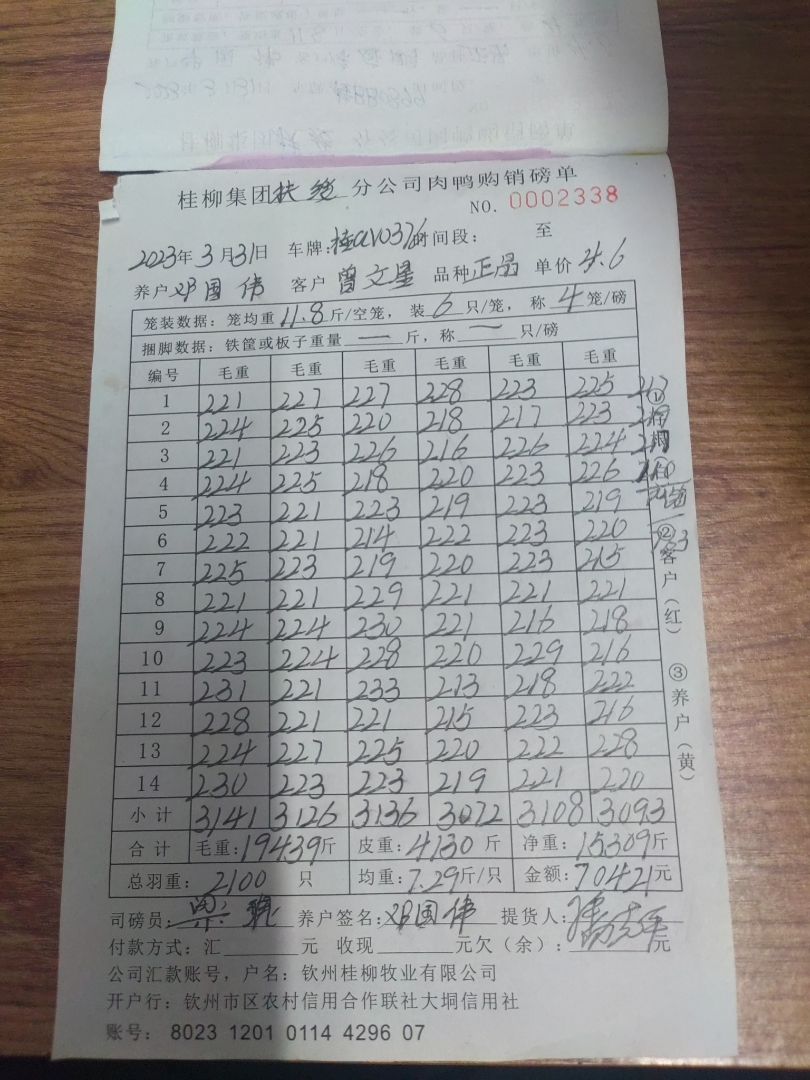 桂柳集团扶绥分公司肉鸭购销磅单
NO. 0002338
2023年3月31日 车牌:桂AV0376 时间段: 至
养户 邓国伟 客户 曾文星 品种 正品 单价 4.6
笼装数据: 笼均重 11.8 斤/空笼, 装 6 只/笼, 称 4 笼/磅
捆脚数据: 铁筐或板子重量 — 斤, 称 — 只/磅
编号 毛重 毛重 毛重 毛重 毛重 毛重
1 221 227 227 228 223 225
2 224 225 220 218 217 223
3 221 223 226 216 226 224
4 224 225 218 220 223 226
5 223 221 223 219 223 219
6 222 221 214 222 223 220
7 225 223 219 220 223 215
8 221 221 229 221 221 221
9 224 224 230 221 216 218
10 223 224 228 220 229 216
11 231 221 233 213 218 222
12 228 221 221 215 223 216
13 224 227 225 220 222 228
14 230 223 223 219 221 220
小计 3141 3126 3136 3072 3108 3093
合计 毛重:19439斤 皮重:4130斤 净重:15309斤
总羽重: 2100 只 均重:7.29斤/只 金额:70421元
① ② 客户(红) ③ 养户(黄)
司磅员: 养户签名:邓国伟 提货人:
付款方式: 汇 元 收现 元欠(余): 元
公司汇款账号, 户名: 钦州桂柳牧业有限公司
开户行: 钦州市区农村信用合作联社大垌信用社
账号: 8023 1201 0114 4296 07